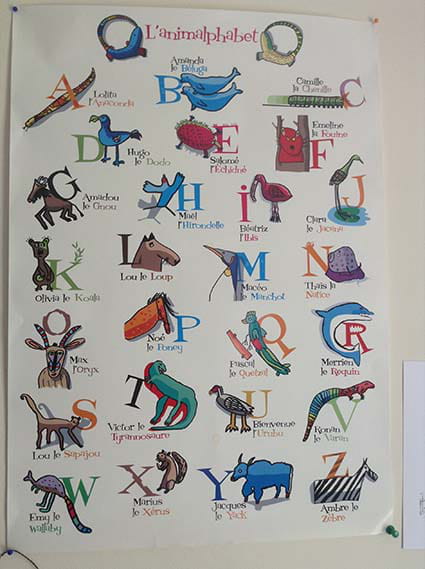 L'animalphabet
A
Lolita
l'Anaconda
Amanda
le Béluga
B
Camille
la Chenille
C
D
Hugo
le Dodo
E
Salomé
l'Echidné
Emeline
la Fouine
F
G
Amadou
le Gnou
H
Maël
l'Hirondelle
i
Béatriz
l'Ibis
J
Clara
le Jacana
K
Olivia le Koala
L
Lou le Loup
M
Macéo
le Manchot
N
Thaïs la
Natice
O
Max
l'Oryx
P
Noé
le Poney
Q
Pascal
le Quetzal
R
Merrien
le Requin
S
Lou le Sapajou
T
Victor le
Tyrannosaure
U
Bienvenue
l'Urubu
V
Ronan
le Varan
W
Emy le
Wallaby
X
Marius
le Xérus
Y
Jacques
le Yack
Z
Ambre le
Zèbre